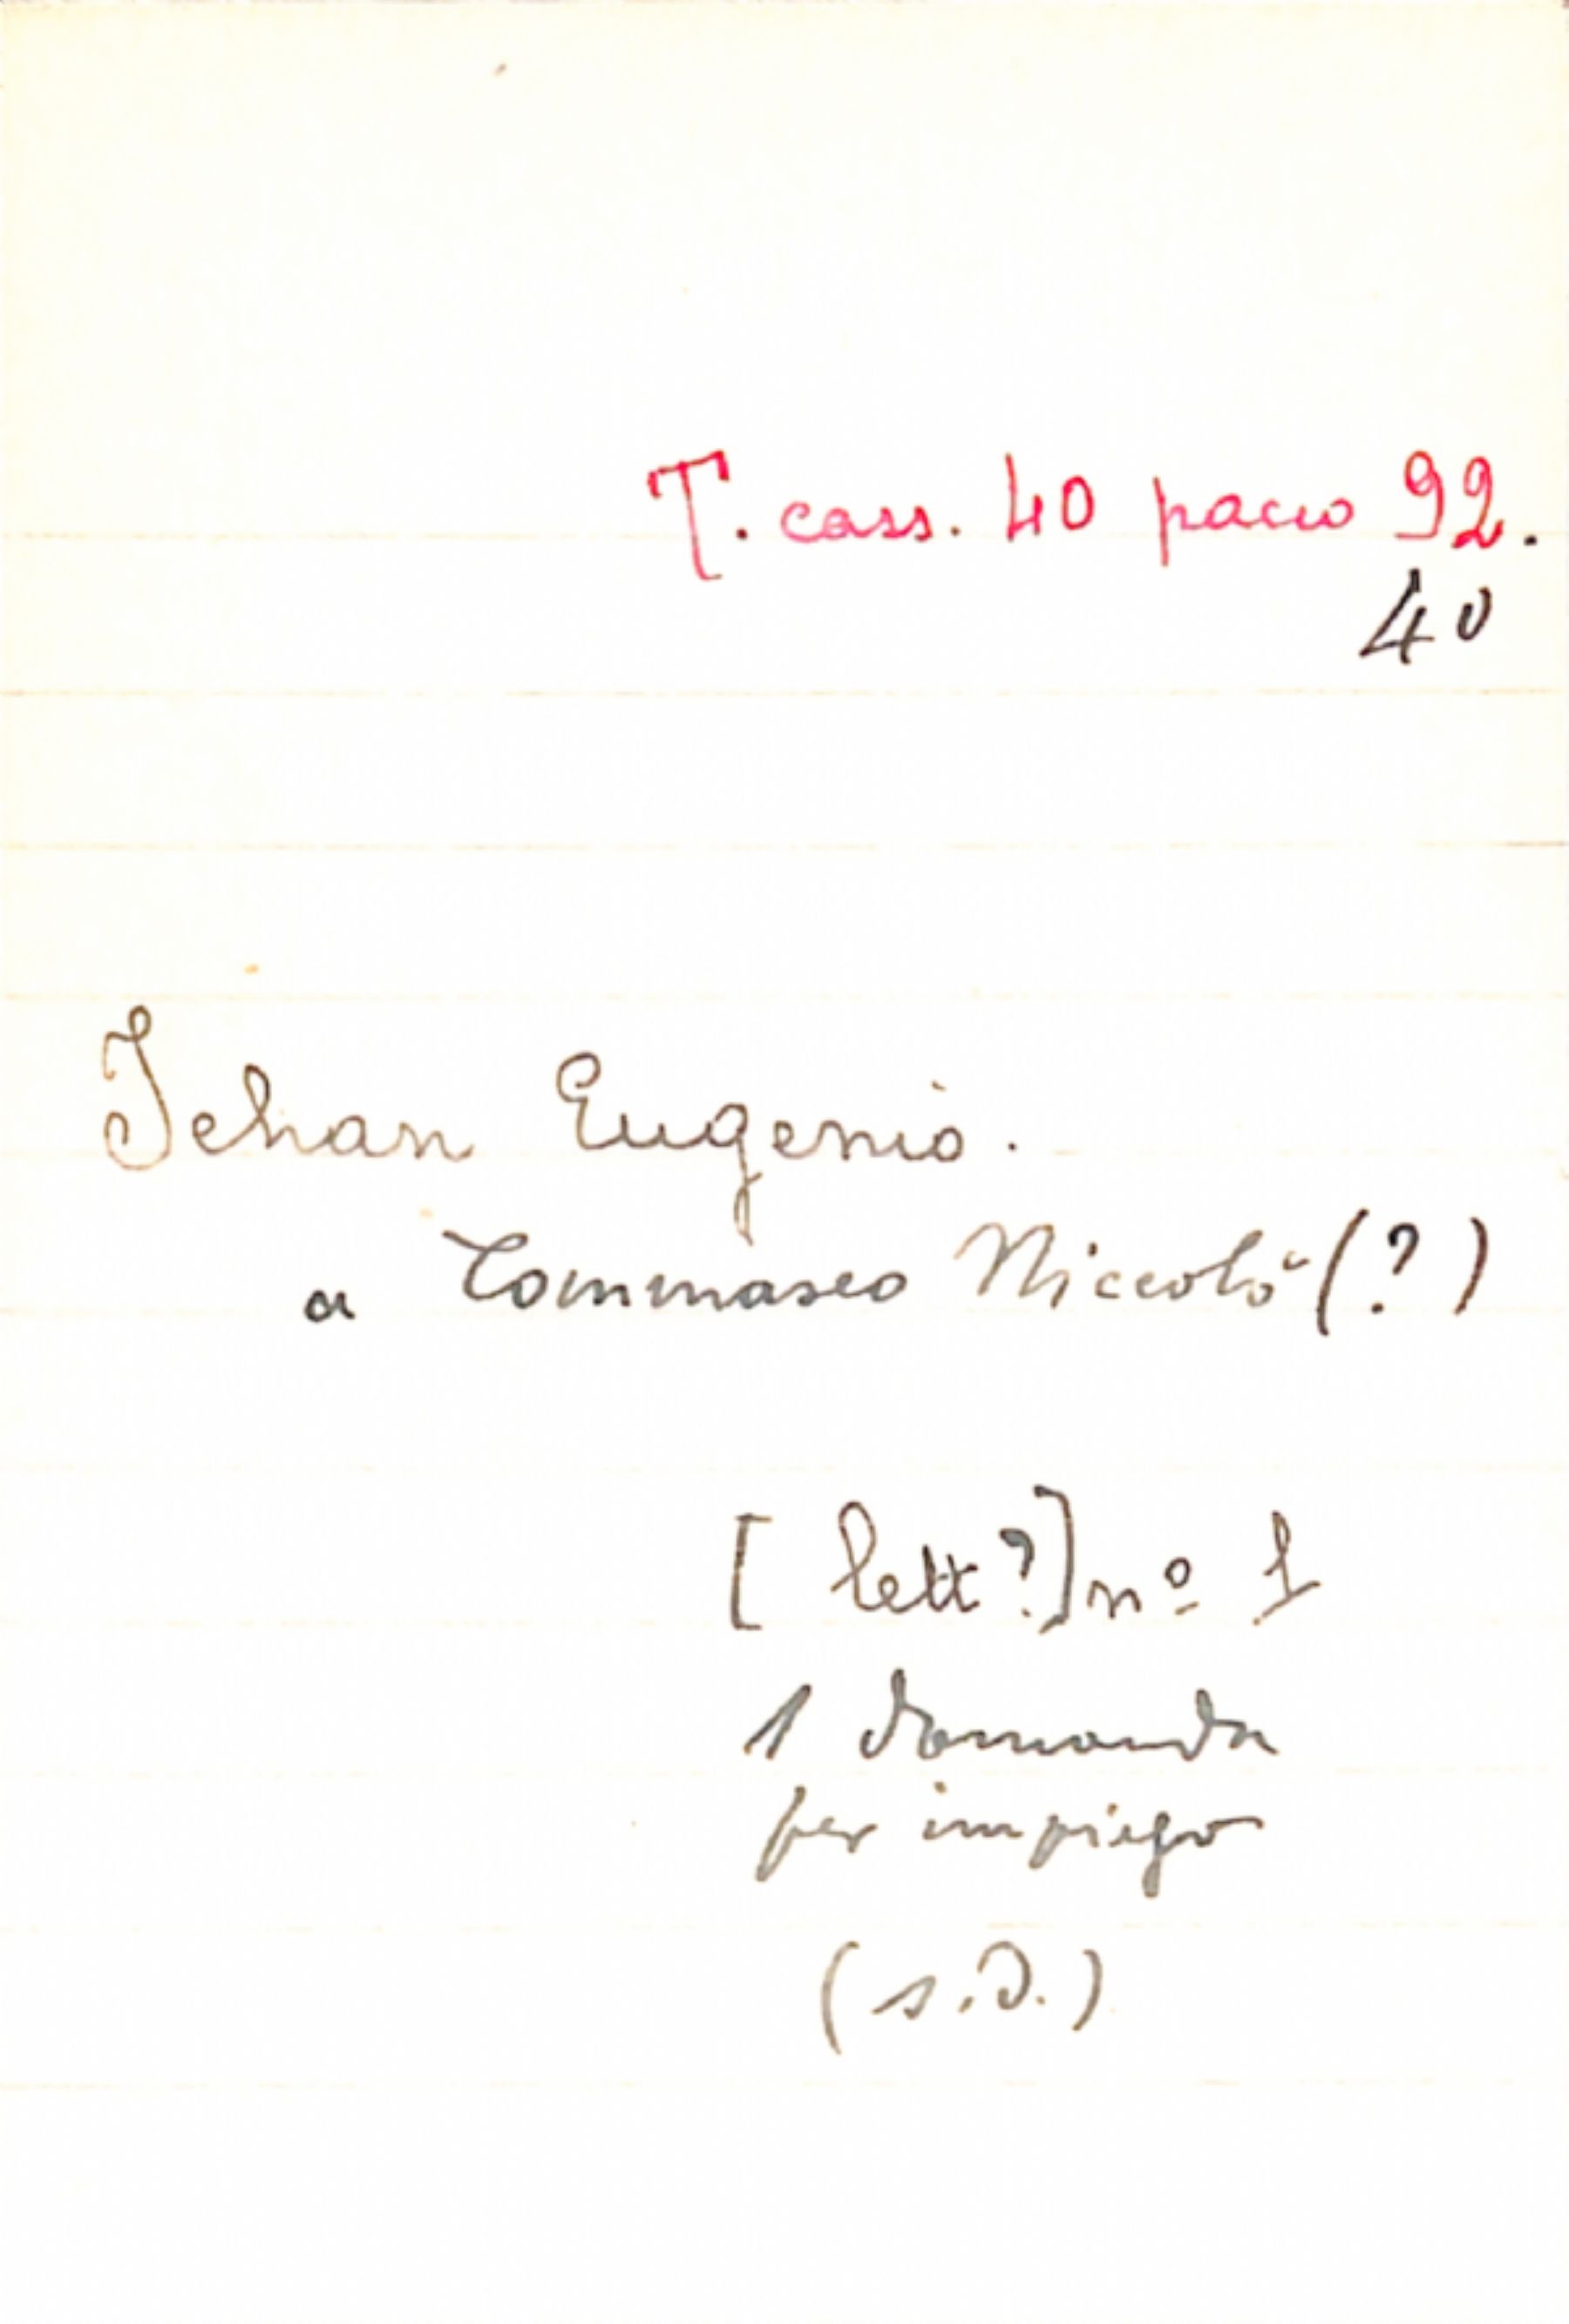 T. cass. 40 pacco 92.
40
Jehan Eugenio.
a Tommaseo Niccolò (?)
[lett?] nº 1
1 domanda
per impiego
(s.d.)